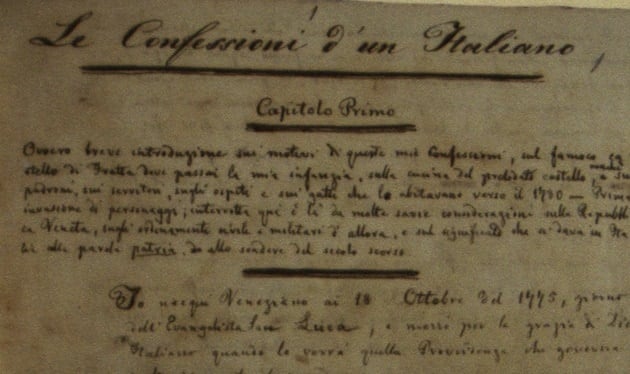 Le Confessioni d'un Italiano
Capitolo Primo
Ovvero breve introduzione sui motivi di queste mie Confessioni, sul famoso ca
stello di Fratta dove passai la mia infanzia, sulla cucina del prelodato castello, nonché sui
padroni, sui servitori, sugli ospiti e sui gatti che lo abitavano verso il 1780 — Prima
invasione di personaggi; interrotta qui e là da molte savie considerazioni sulla Repubbli
ca Veneta, sugli ordinamenti civili e militari d'allora, e sul significato che si dava in Ita
lia alla parola patria, da allo scadere del secolo scorso.
Io nacqui Veneziano ai 18 Ottobre del 1775, giorno
dell'Evangelista San Luca, e morrò per la grazia di Dio
Italiano quando lo vorrà quella Provvidenza che governa